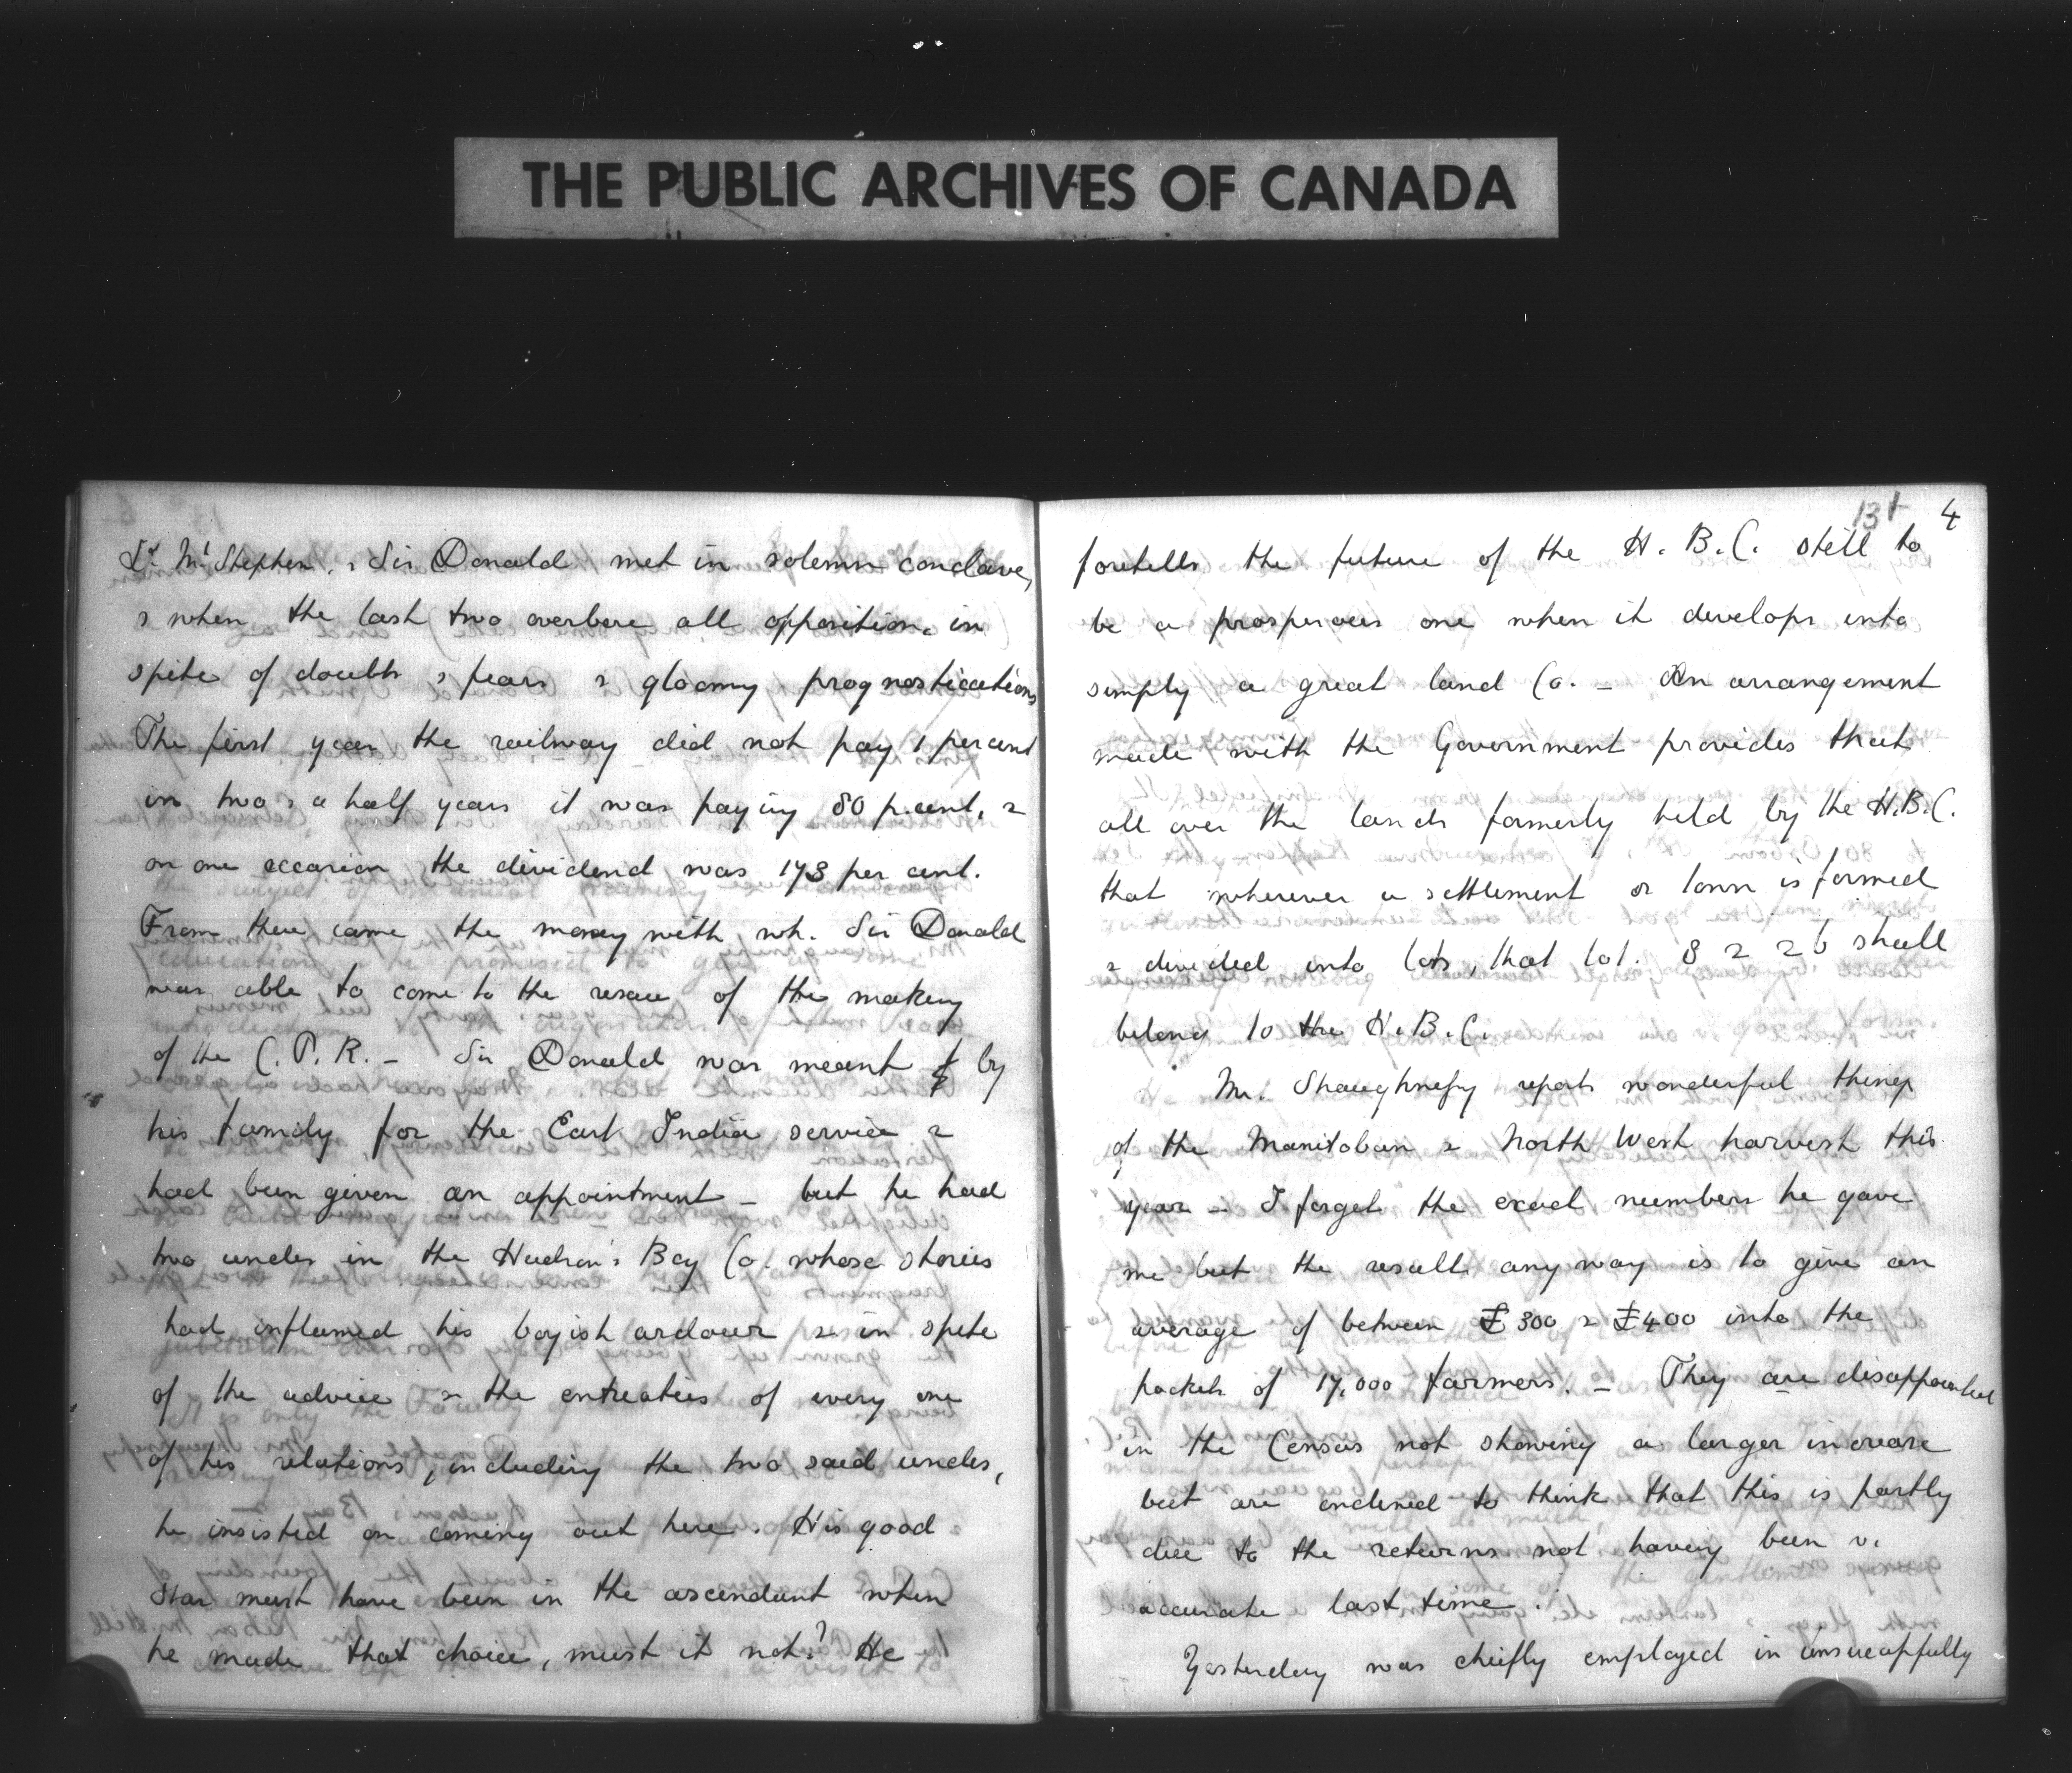 THE PUBLIC ARCHIVES OF CANADA
Ld. Mt Stephen, & Sir Donald met in solemn conclave,
& when the last two overbore all opposition, in
spite of doubts & fears & gloomy prognostications
The first year the railway did not pay 1 per cent
in two & a half years it was paying 80 p. cent, &
on one occasion the dividend was 173 per cent.
From there came the money with wh. Sir Donald
was able to come to the rescue of the making
of the C.P.R. – Sir Donald was meant by
his family for the East India service &
had been given an appointment – but he had
two uncles in the Hudson's Bay Co. whose stories
had inflamed his boyish ardour & in spite
of the advice & the entreaties of every one
of his relations, including the two said uncles,
he insisted on coming out here. His good
star must have been in the ascendant when
he made that choice, must it not? He
131 4
foretells the future of the H.B.C. still to
be a prosperous one when it develops into
simply a great land Co. – An arrangement
made with the Government provides that
all over the lands formerly held by the H.B.C.
that wherever a settlement or town is formed
& divided into lots, that lot. 8 & 26 shall
belong to the H.B.C.
Mr. Shaughnessy reports wonderful things
of the Manitoban & North West harvest this
year – I forget the exact numbers he gave
me but the result any way is to give an
average of between £300 & £400 into the
pockets of 17,000 farmers. – They are disappointed
in the Census not showing a larger increase
but are inclined to think that this is partly
due to the returns not having been v.
accurate last time.
Yesterday was chiefly employed in unsuccessfully